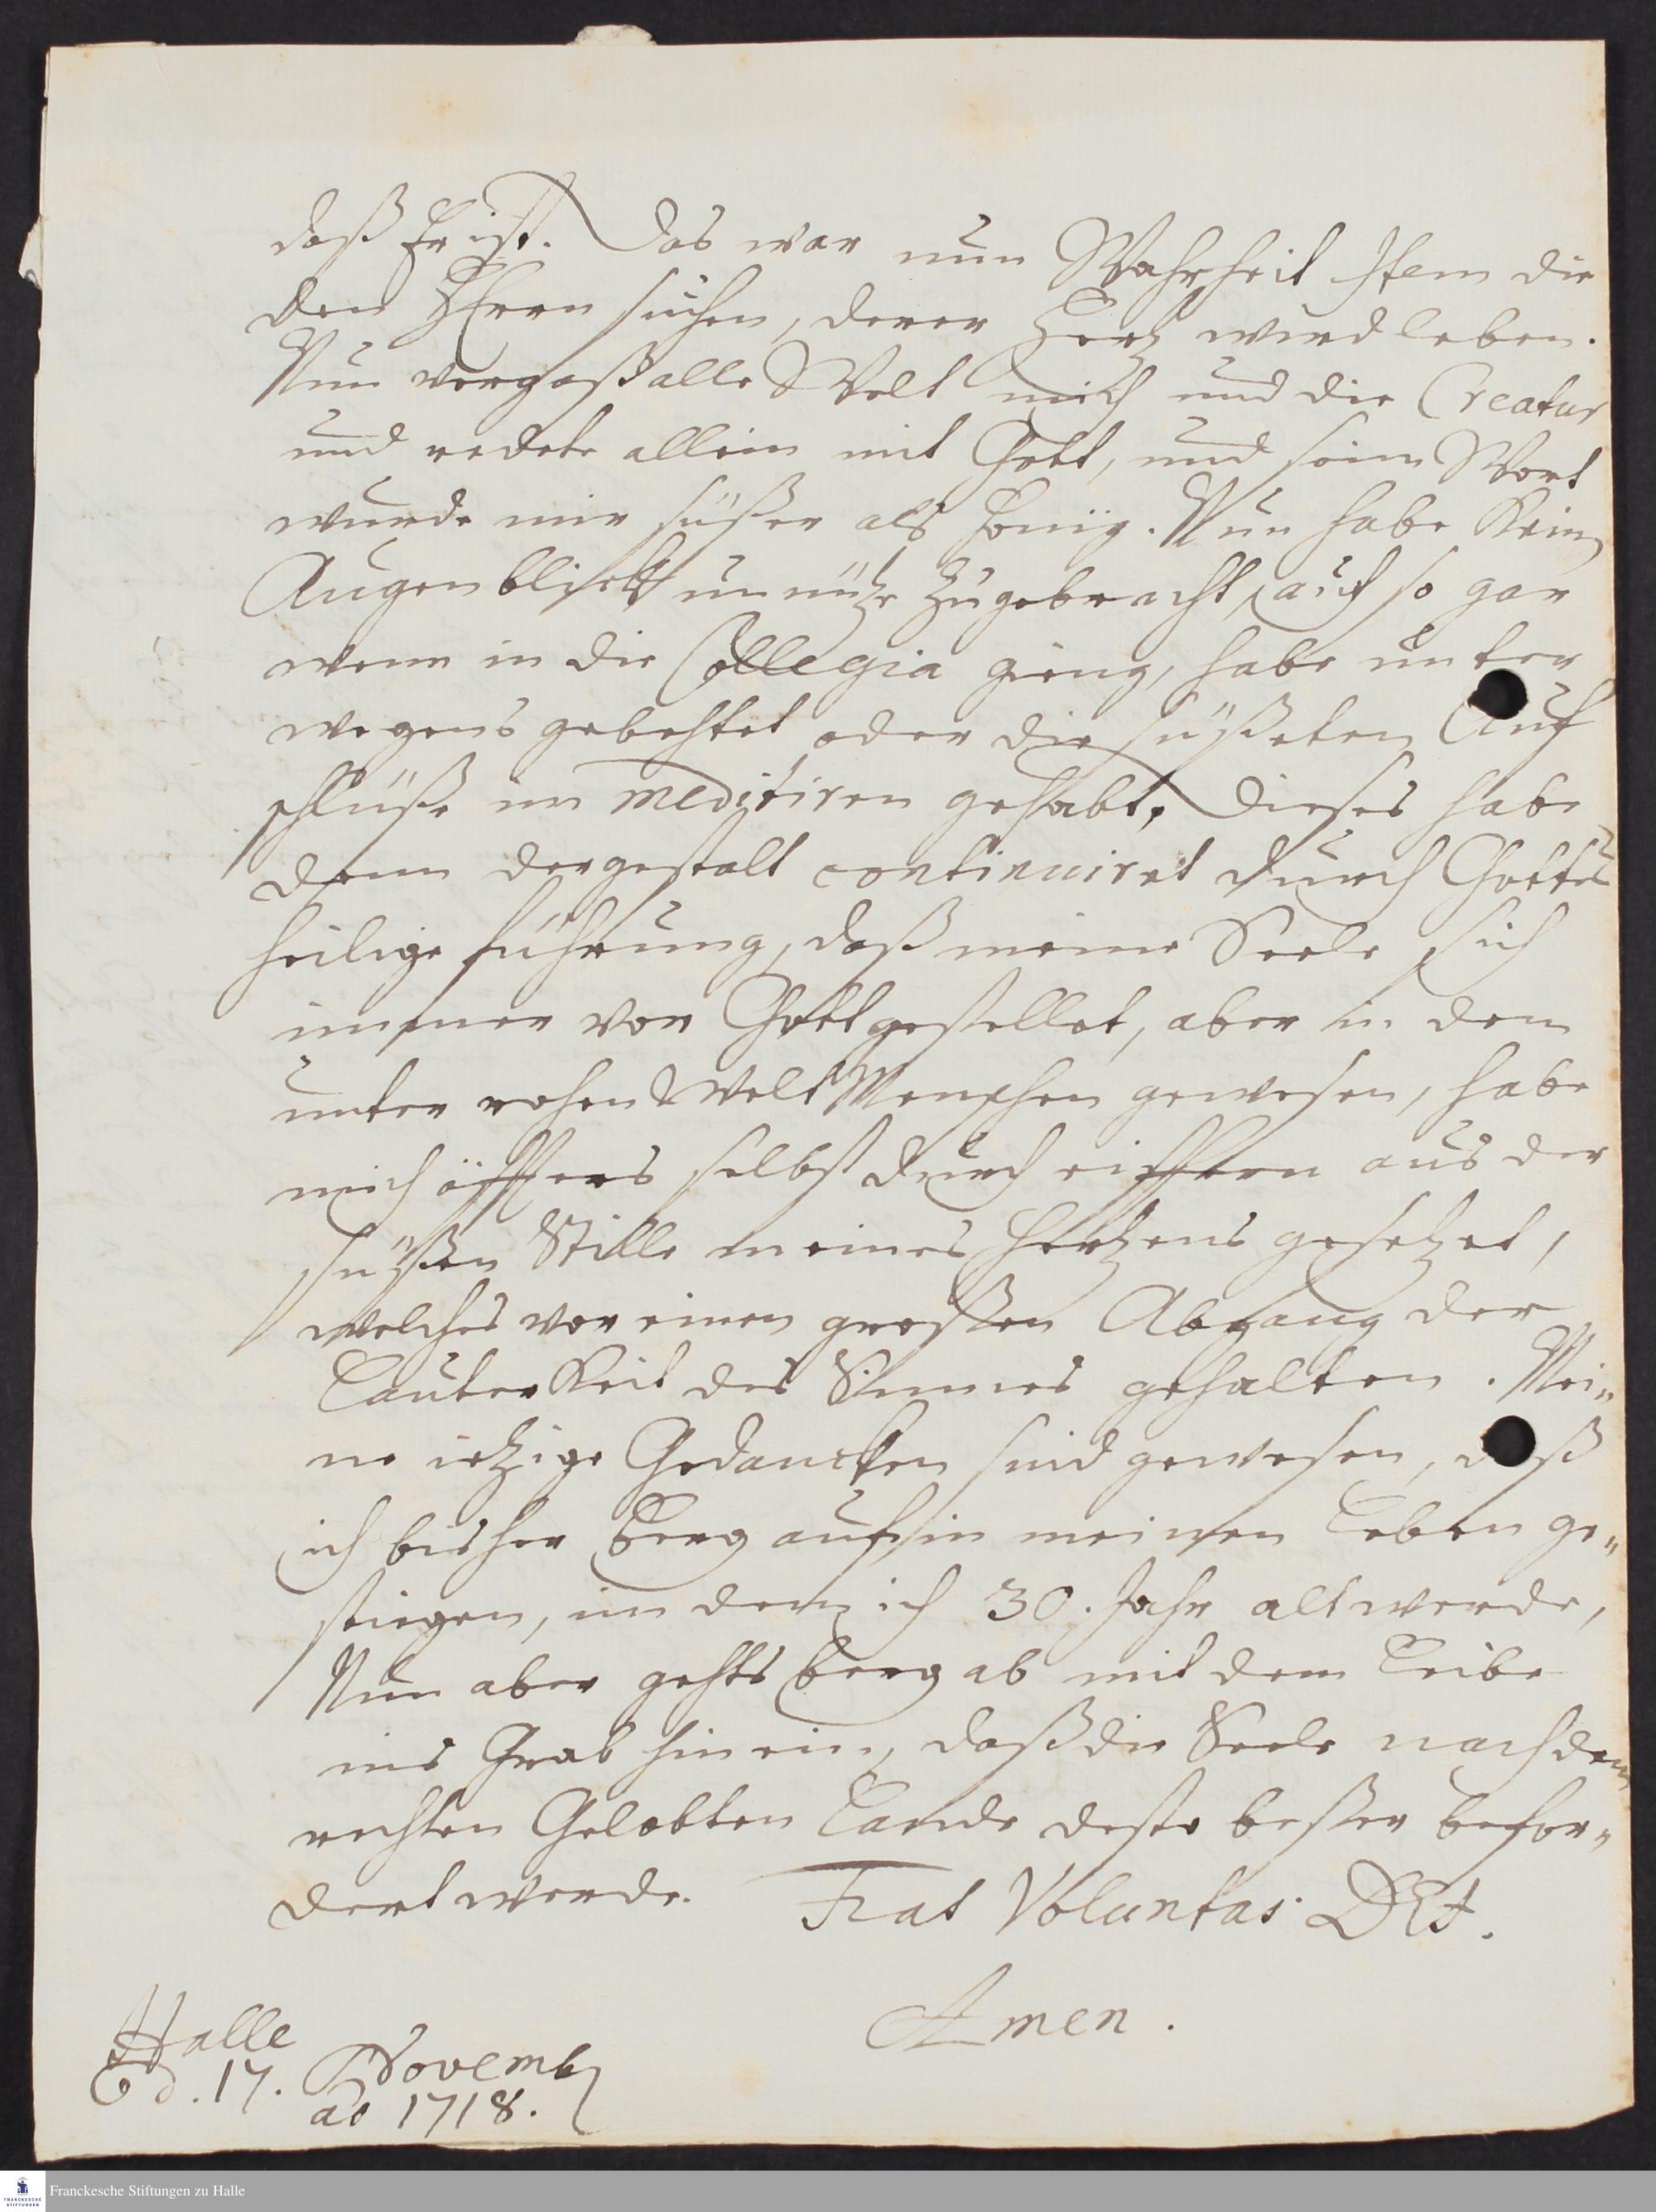 daß Er ist. Das war nun Wahrheit Item die
den HErrn suchen, derer Hertz wird leben.
Nun vergaß alle Welt mich und die Creatur
und redete allein mit Gott, und sein Wort
wurde mir süßer als Honig. Nun habe kein
Augenblick unnütze zugebracht, auch so gar
wenn in die Collegia gieng, habe unter
wegens gebehtet oder die süßesten Auf
schlüße im meditiren gehabt, Dieses habe
denn dergestalt continuiret durch Gottes
heilige führung, daß meine Seele sich
immer vor Gott gestellet, aber in dem
unter rohen Welt Menschen gewesen, habe
mich öffters selbst durch eiffern aus der
süßen Stille meines Hertzens gesetzet,
welches vor einen großen Abgang der
Lauterkeit des Sinnes gehalten. Mei„
ne ietzige Gedancken sind gewesen, daß
ich bisher Berg auf in meinen Leben ge„
stiegen, in dem ich 30. Jahr alt werde,
Nun aber gehts Berg ab mit dem Leibe
ins Grab hinein, daß die Seele nach dem
rechten Gelobten Lande desto beßer befor„
dert werde. Fiat Voluntas DEI.
Amen.
Halle
d. 17. Novemb
ao 1718.
Franckesche Stiftungen zu Halle
FRANCKESCHE
STIFTUNGEN